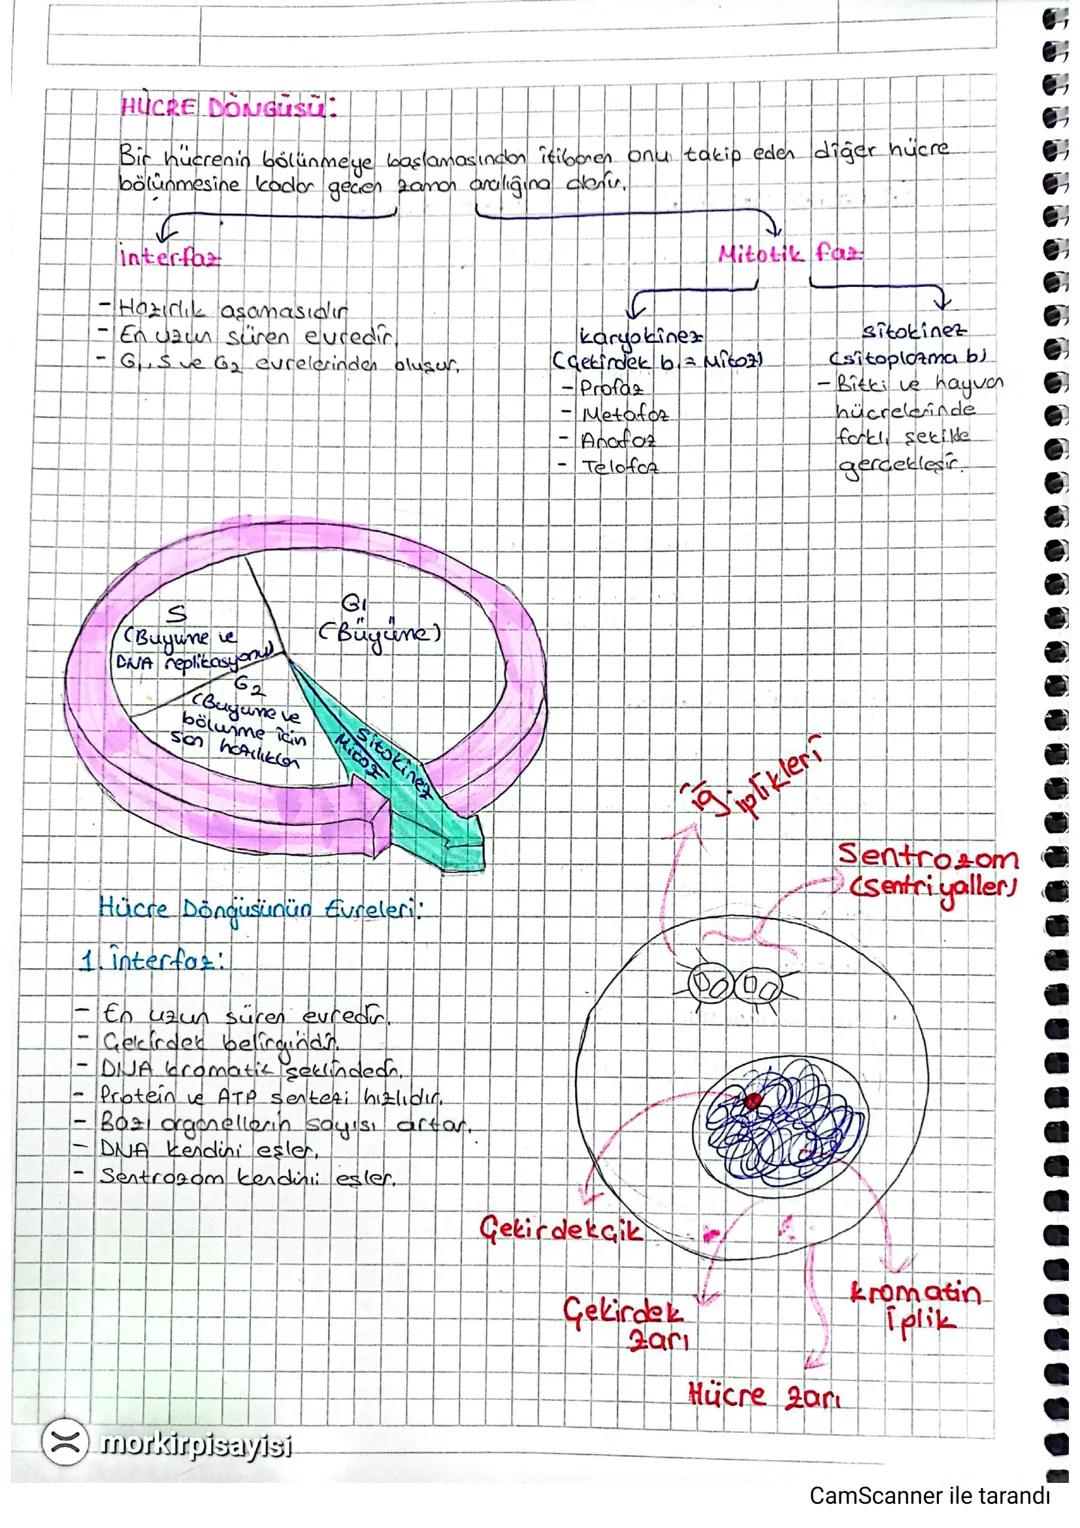 HÜCRE DÖNGÜSÜ:
Bir hücrenin bölünmeye başlamasından itibaren onu takip eden diğer hücre
bölünmesine kadar geçen zaman aralığına denir.
interfaz
Mitotik faz
- Hazırlık aşamasıdır
- En uzun süren evredir.
- G₁, S ve G₂ evrelerinden oluşur.
karyokinez
(Çekirdek b. = Mitoz)
- Profaz
- Metafaz
- Anafaz
- Telofaz
sitokinez
(sitoplazma b)
- Bitki ve hayvan
hücrelerinde
farklı şekilde
gerçekleşir.
S
(Büyüme ve
DNA replikasyonu)
G1
(Büyüme)
G2
(Büyüme ve
bölünme için
son hazırlıklar
Sitokinez
Mitoz
iğ iplikleri
Sentrozom
(Sentriyoller)
Hücre Döngüsünün Evreleri:
1. interfaz:
- En uzun süren evredir.
- Çekirdek belirgindir.
- DNA kromatik şeklindedir.
- Protein ve ATP sentezi hızlıdır.
- Bazı organellerin sayısı artar.
- DNA kendini eşler.
- Sentrozom kendini eşler.
Çekirdekçik
Çekirdek
zarı
kromatin
iplik
Hücre zarı
morkirpisayisi
CamScanner ile tarandı